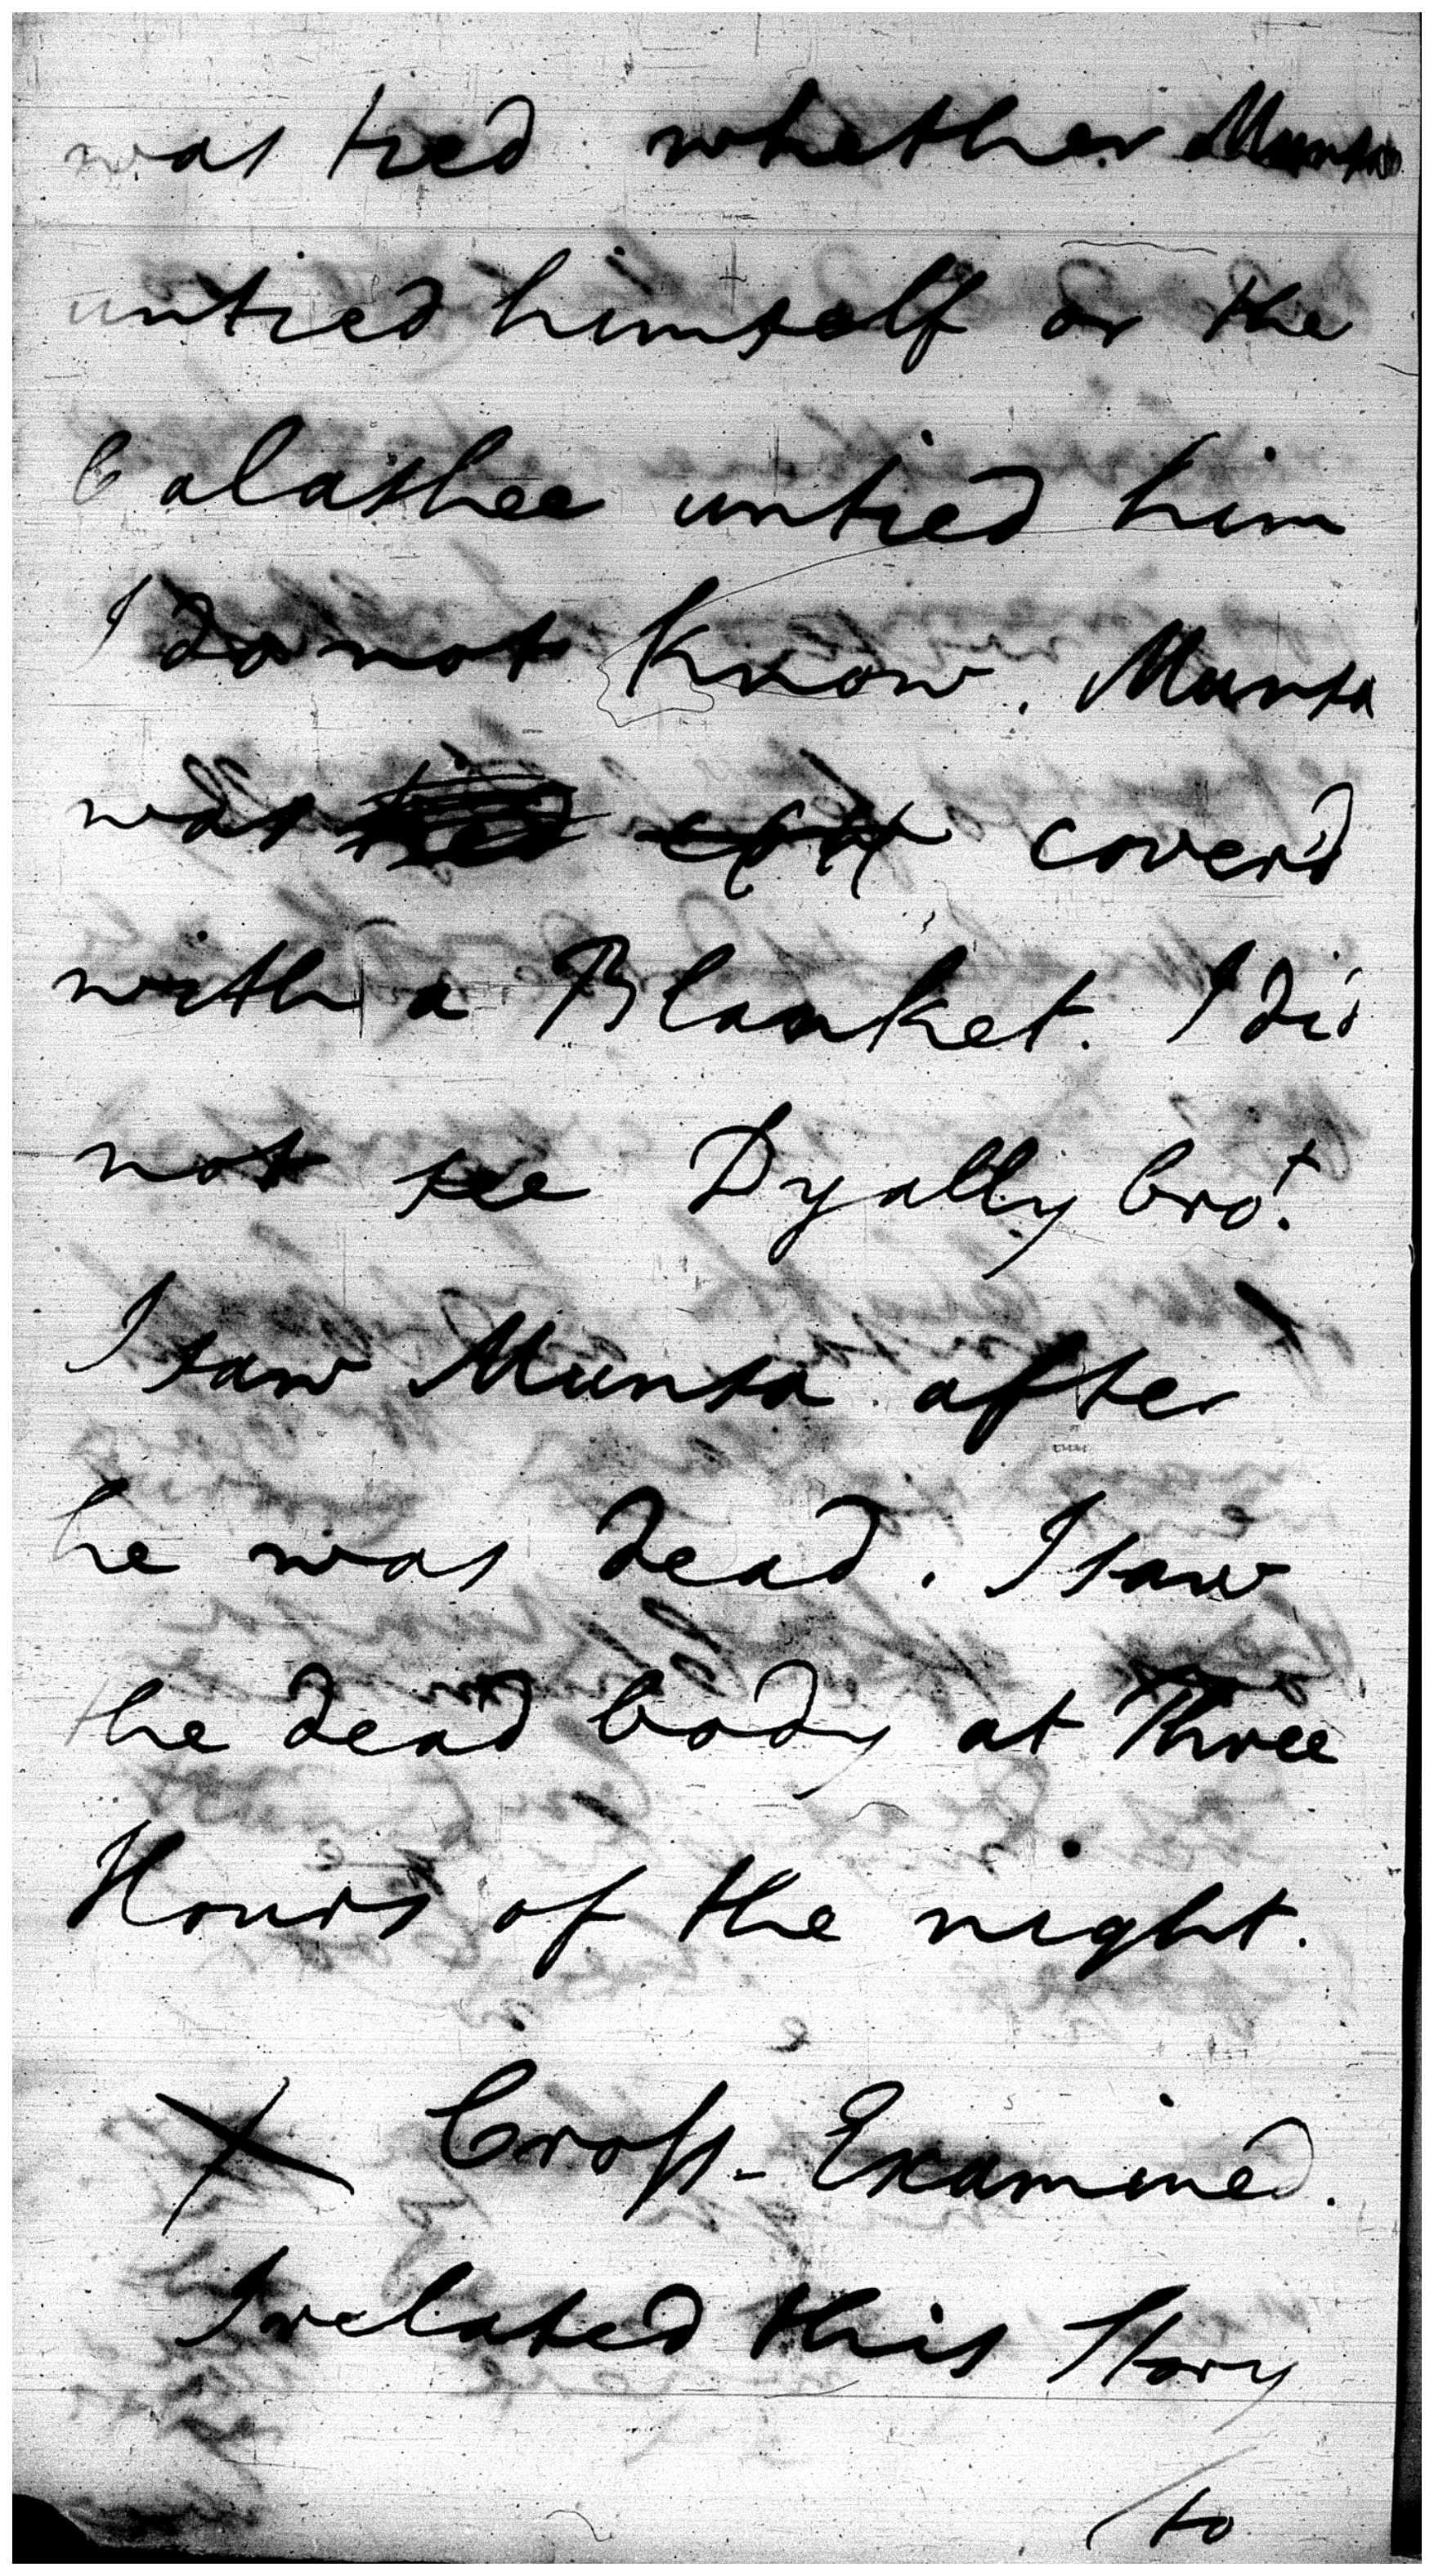 was tied whether Munsa
untied himself or the
Calashee untied him
I do not know. Munsa
was tied cover'd
with a Blanket. I did
not see Dyally bro.t
I saw Munsa after
he was dead. I saw
the dead body at Three
Hours of the night.
X Cross-Examined.
I related this Story
/to